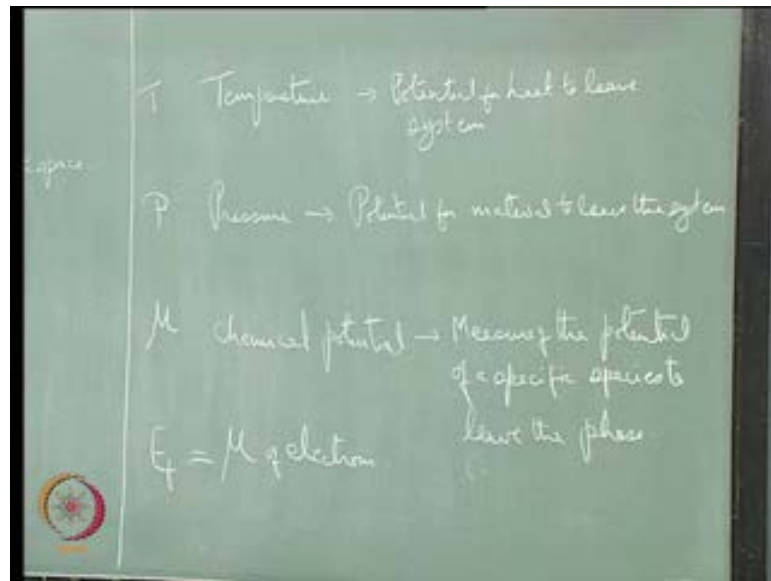 T Temperature → Potential for heat to leave
system
space
P Pressure → Potential for material to leave the system
μ Chemical potential → Measure of the potential
of a specific species to
leave the phase
Ef = μ of electron